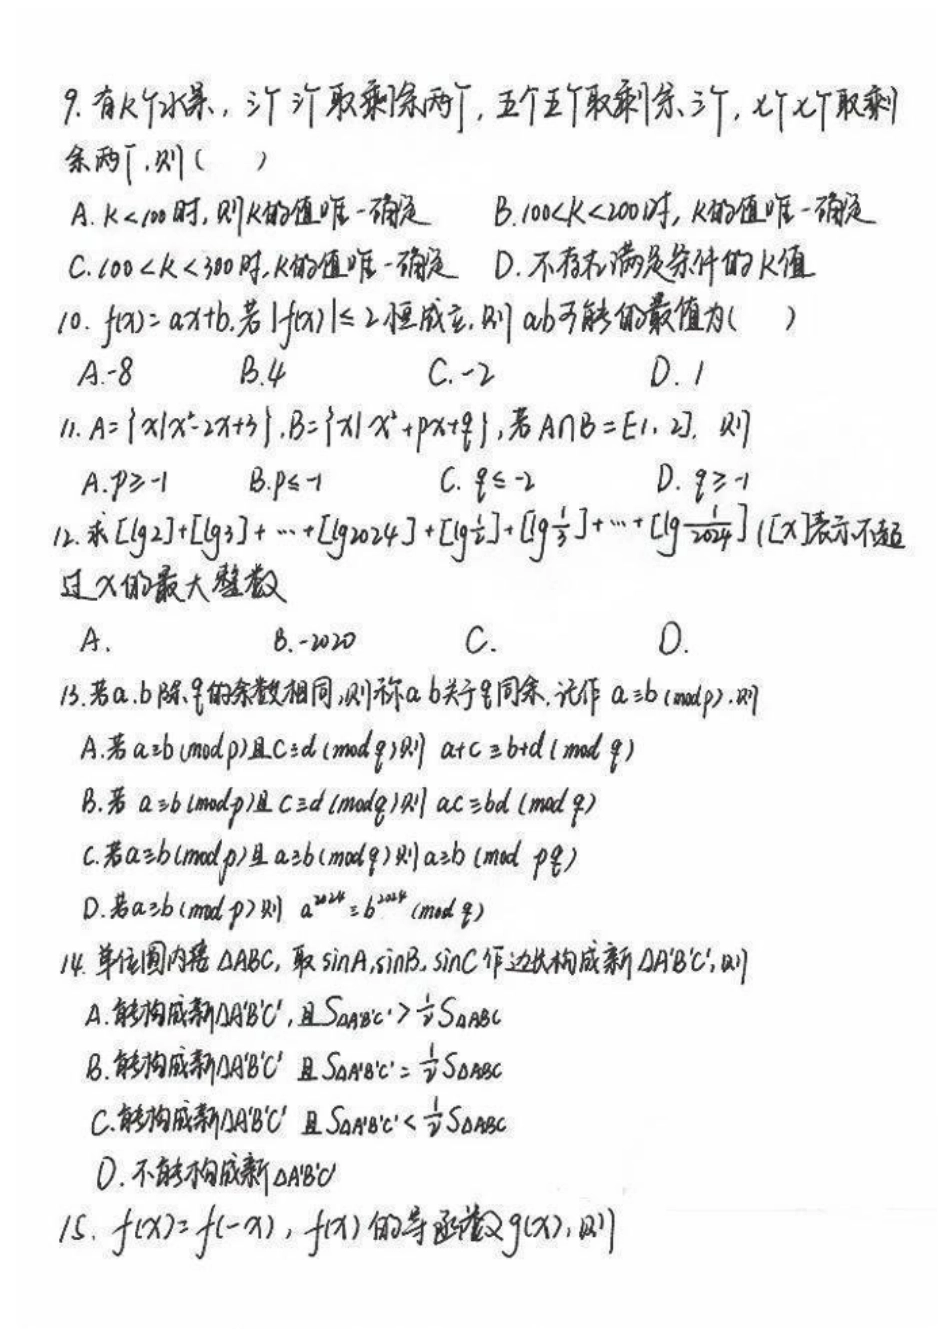 9. 有k个水果, 三个三个取剩余两个, 五个五个取剩余三个, 七个七个取剩
余两个,则( )
A. k<100时, 则k的值唯一确定 B. 100<k<200时, k的值唯一确定
C. 100<k<300时, k的值唯一确定 D. 不存在满足条件的k值
10. f(x)=ax+b,若|f(x)|≤2恒成立,则ab可能的最值为( )
A.-8 B.4 C.-2 D.1
11. A={x|x²-2x+3},B={x|x²+px+q},若A∩B=[1,2],则
A.p≥-1 B.p≤-1 C. q≤-2 D. q≥-1
12. 求[lg2]+[lg3]+…+[lg2024]+[lg1/2]+[lg1/3]+…+[lg1/2024] ([x]表示不超
过x的最大整数
A. B.-2020 C. D.
13.若a,b除q的余数相同,则称a b关于q同余,记作 a≡b(modp),则
A.若a≡b(modp)且c≡d(modq)则 a+c≡b+d(mod q)
B.若 a≡b(modp)且c≡d(modq)则 ac≡bd(mod q)
C.若a≡b(modp)且a≡b(modq)则a≡b(mod pq)
D.若a≡b(modp)则 a²⁰²⁴≡b²⁰²⁴(mod q)
14. 单位圆内接△ABC, 取sinA,sinB,sinC作边长构成新△A'B'C',则
A.能构成新△A'B'C',且S△A'B'C'>1/2S△ABC
B.能构成新△A'B'C' 且S△A'B'C'=1/2S△ABC
C.能构成新△A'B'C' 且S△A'B'C'<1/2S△ABC
D.不能构成新△A'B'C'
15. f(x)=f(-x), f(x)的导函数g(x),则